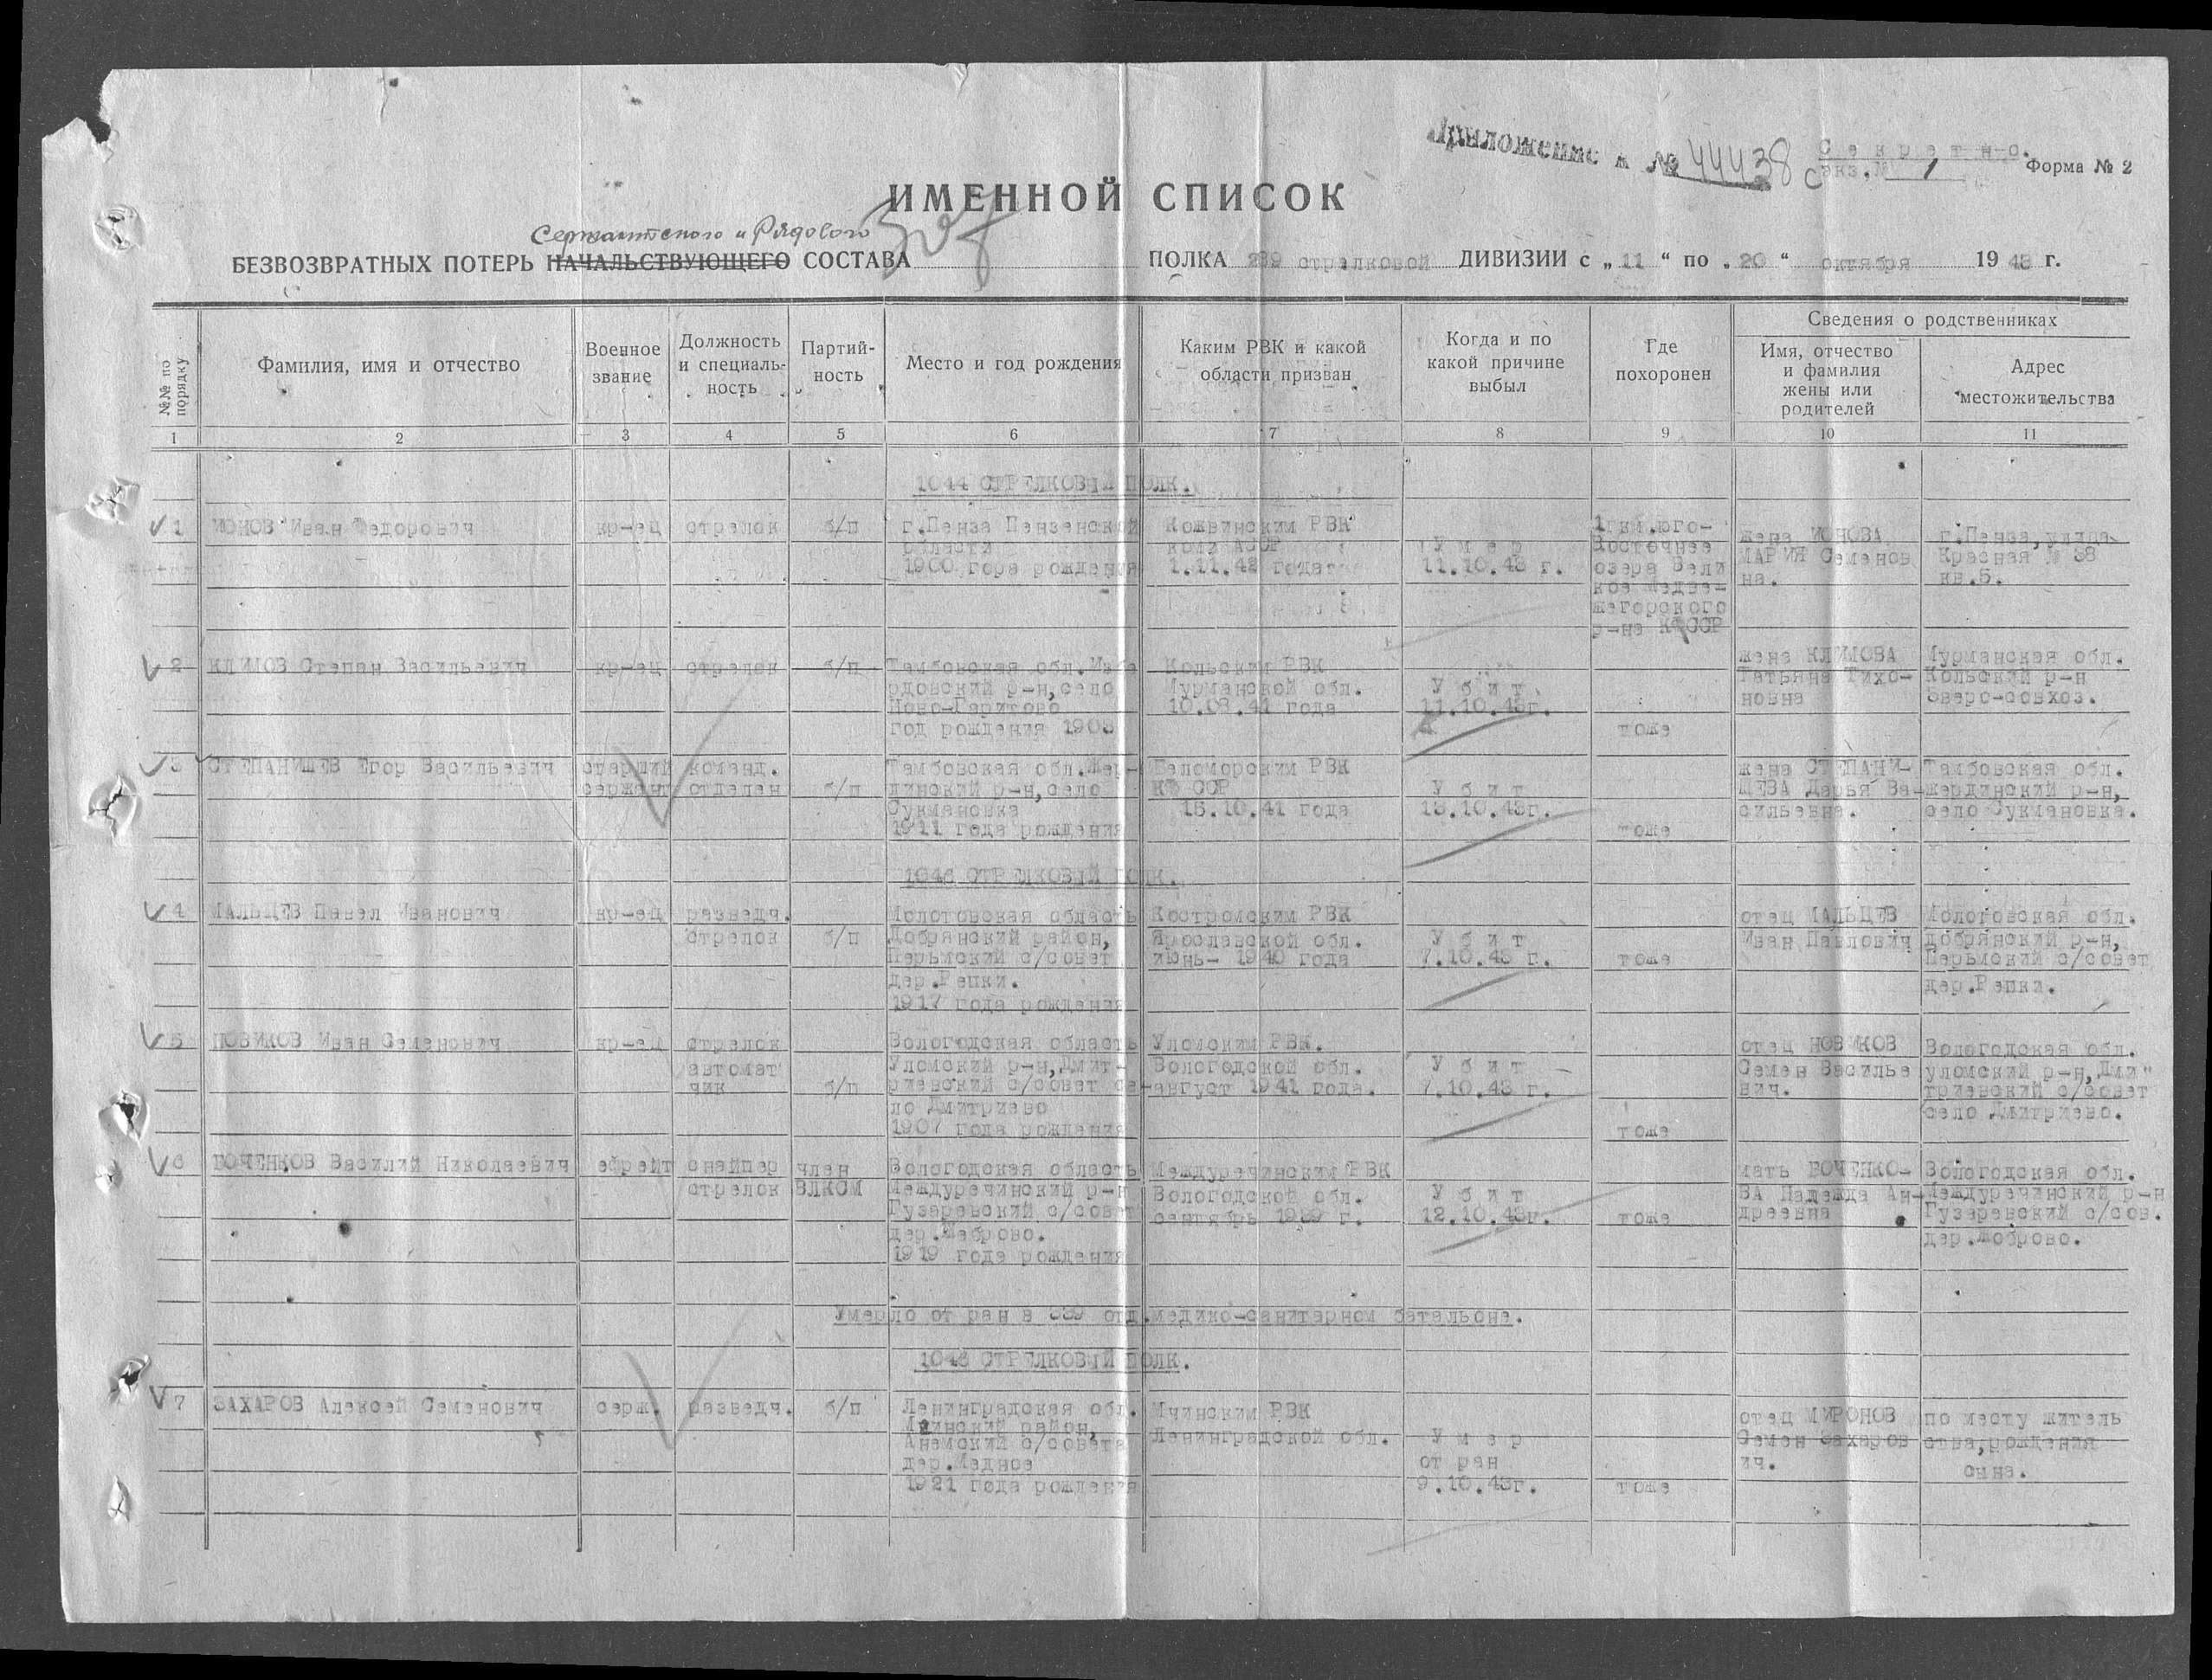 Приложение к № 44438с
Секретно.
экз.№ 1
Форма № 2
ИМЕННОЙ СПИСОК
Сержантского и Рядового
БЕЗВОЗВРАТНЫХ ПОТЕРЬ НАЧАЛЬСТВУЮЩЕГО СОСТАВА ПОЛКА 289 стрелковой ДИВИЗИИ с „ 11 “ по „ 20 “ октября 1943 г.
№№ по порядку
Фамилия, имя и отчество
Военное звание
Должность и специаль-
ность
Партий-
ность
Место и год рождения
Каким РВК и какой
области призван
Когда и по
какой причине
выбыл
Где
похоронен
Сведения о родственниках
Имя, отчество
и фамилия
жены или
родителей
Адрес
местожительства
1 2 3 4 5 6 7 8 9 10 11
1044 СТРЕЛКОВЫЙ ПОЛК.
1
ИОНОВ Иван Федорович
кр-ец
стрелок
б/п
г.Пенза Пензенской
области
1900 гора рождения
Кожвинским РВК
коми АССР
1.11.42 года
Умер
11.10.43 г.
1 км.юго-
Восточнее
озера Вели
кое Медве-
жегорского
р-на КФССР
жена ИОНОВА
МАРИЯ Семенов
на.
г.Пенза, улица
Красная № 38
кв.5.
2
КЛИМОВ Степан Васильевич
кр-ец
стрелок
б/п
Тамбовская обл.Изба
рдовский р-н, село
Ново-Гаритово
год рождения 1903
Кольским РВК
Мурманской обл.
10.08.41 года
Убит
11.10.43г.
тоже
жена КЛИМОВА
Татьяна Тихо-
новна
Мурманская обл.
Кольский р-н
Зверо-совхоз.
3
СТЕПАНИЩЕВ Егор Васильевич
старший
сержант
команд.
отделен
б/п
Тамбовская обл.Жер-
динский р-н, село
Сукмановка
1911 года рождения
Беломорским РВК
КФ ССР
15.10.41 года
Убит
13.10.43г.
тоже
жена СТЕПАНИ-
ЩЕВА Дарья Ва-
сильевна.
Тамбовская обл.
жердинский р-н,
село Сукмановка.
1046 СТРЕЛКОВЫЙ ПОЛК.
4
МАЛЬЦЕВ Павел Иванович
кр-ец
разведч.
стрелок
б/п
Молотовская область
Добрянский район,
Перьмский с/совет
дер.Репки.
1917 года рождения
Костромским РВК
Ярославской обл.
июнь- 1940 года
Убит
7.10.43 г.
тоже
отец МАЛЬЦЕВ
Иван Павлович
Молотовская обл.
добрянский р-н,
Перьмский с/совет
дер.Репки.
5
НОВИКОВ Иван Семенович
кр-ец
стрелок
автомат
чик
б/п
Вологодская область
Уломский р-н, Дмит-
риевский с/совет се-
ло Дмитриево
1907 года рождения
Уломским РВК.
Вологодской обл.
август 1941 года.
Убит
7.10.43 г.
тоже
отец НОВИКОВ
Семен Василье
вич.
Вологодская обл.
уломский р-н, Дми"
триевский с/совет
село Дмитриево.
6
БОЧЕНКОВ Василий Николаевич
ефрейт
снайпер
стрелок
член
ВЛКСМ
Вологодская область
Междуречинский р-н
Гузаревский с/совет
дер.Жаброво.
1919 года рождения
Междуречинским РВК
Вологодской обл.
сентябрь 1939 г.
Убит
12.10.43г.
тоже
мать БОЧЕНКО-
ВА Надежда Ан-
дреевна
Вологодская обл.
Междуречинский р-н
Гузаревский с/сов.
дер.Жоброво.
Умерло от ран в 389 отд.медико-санитарном батальоне.
1046 СТРЕЛКОВЫЙ ПОЛК.
7
ЗАХАРОВ Алексей Семенович
серж.
разведч.
б/п
Ленинградская обл.
Мгинский район,
дер.Медное
1921 года рождения
Мгинским РВК
Ленинградской обл.
Умер
от ран
9.10.43г.
тоже
отец МИРОНОВ
Семен Захаров
ич.
по месту житель
ства, рождения
сына.